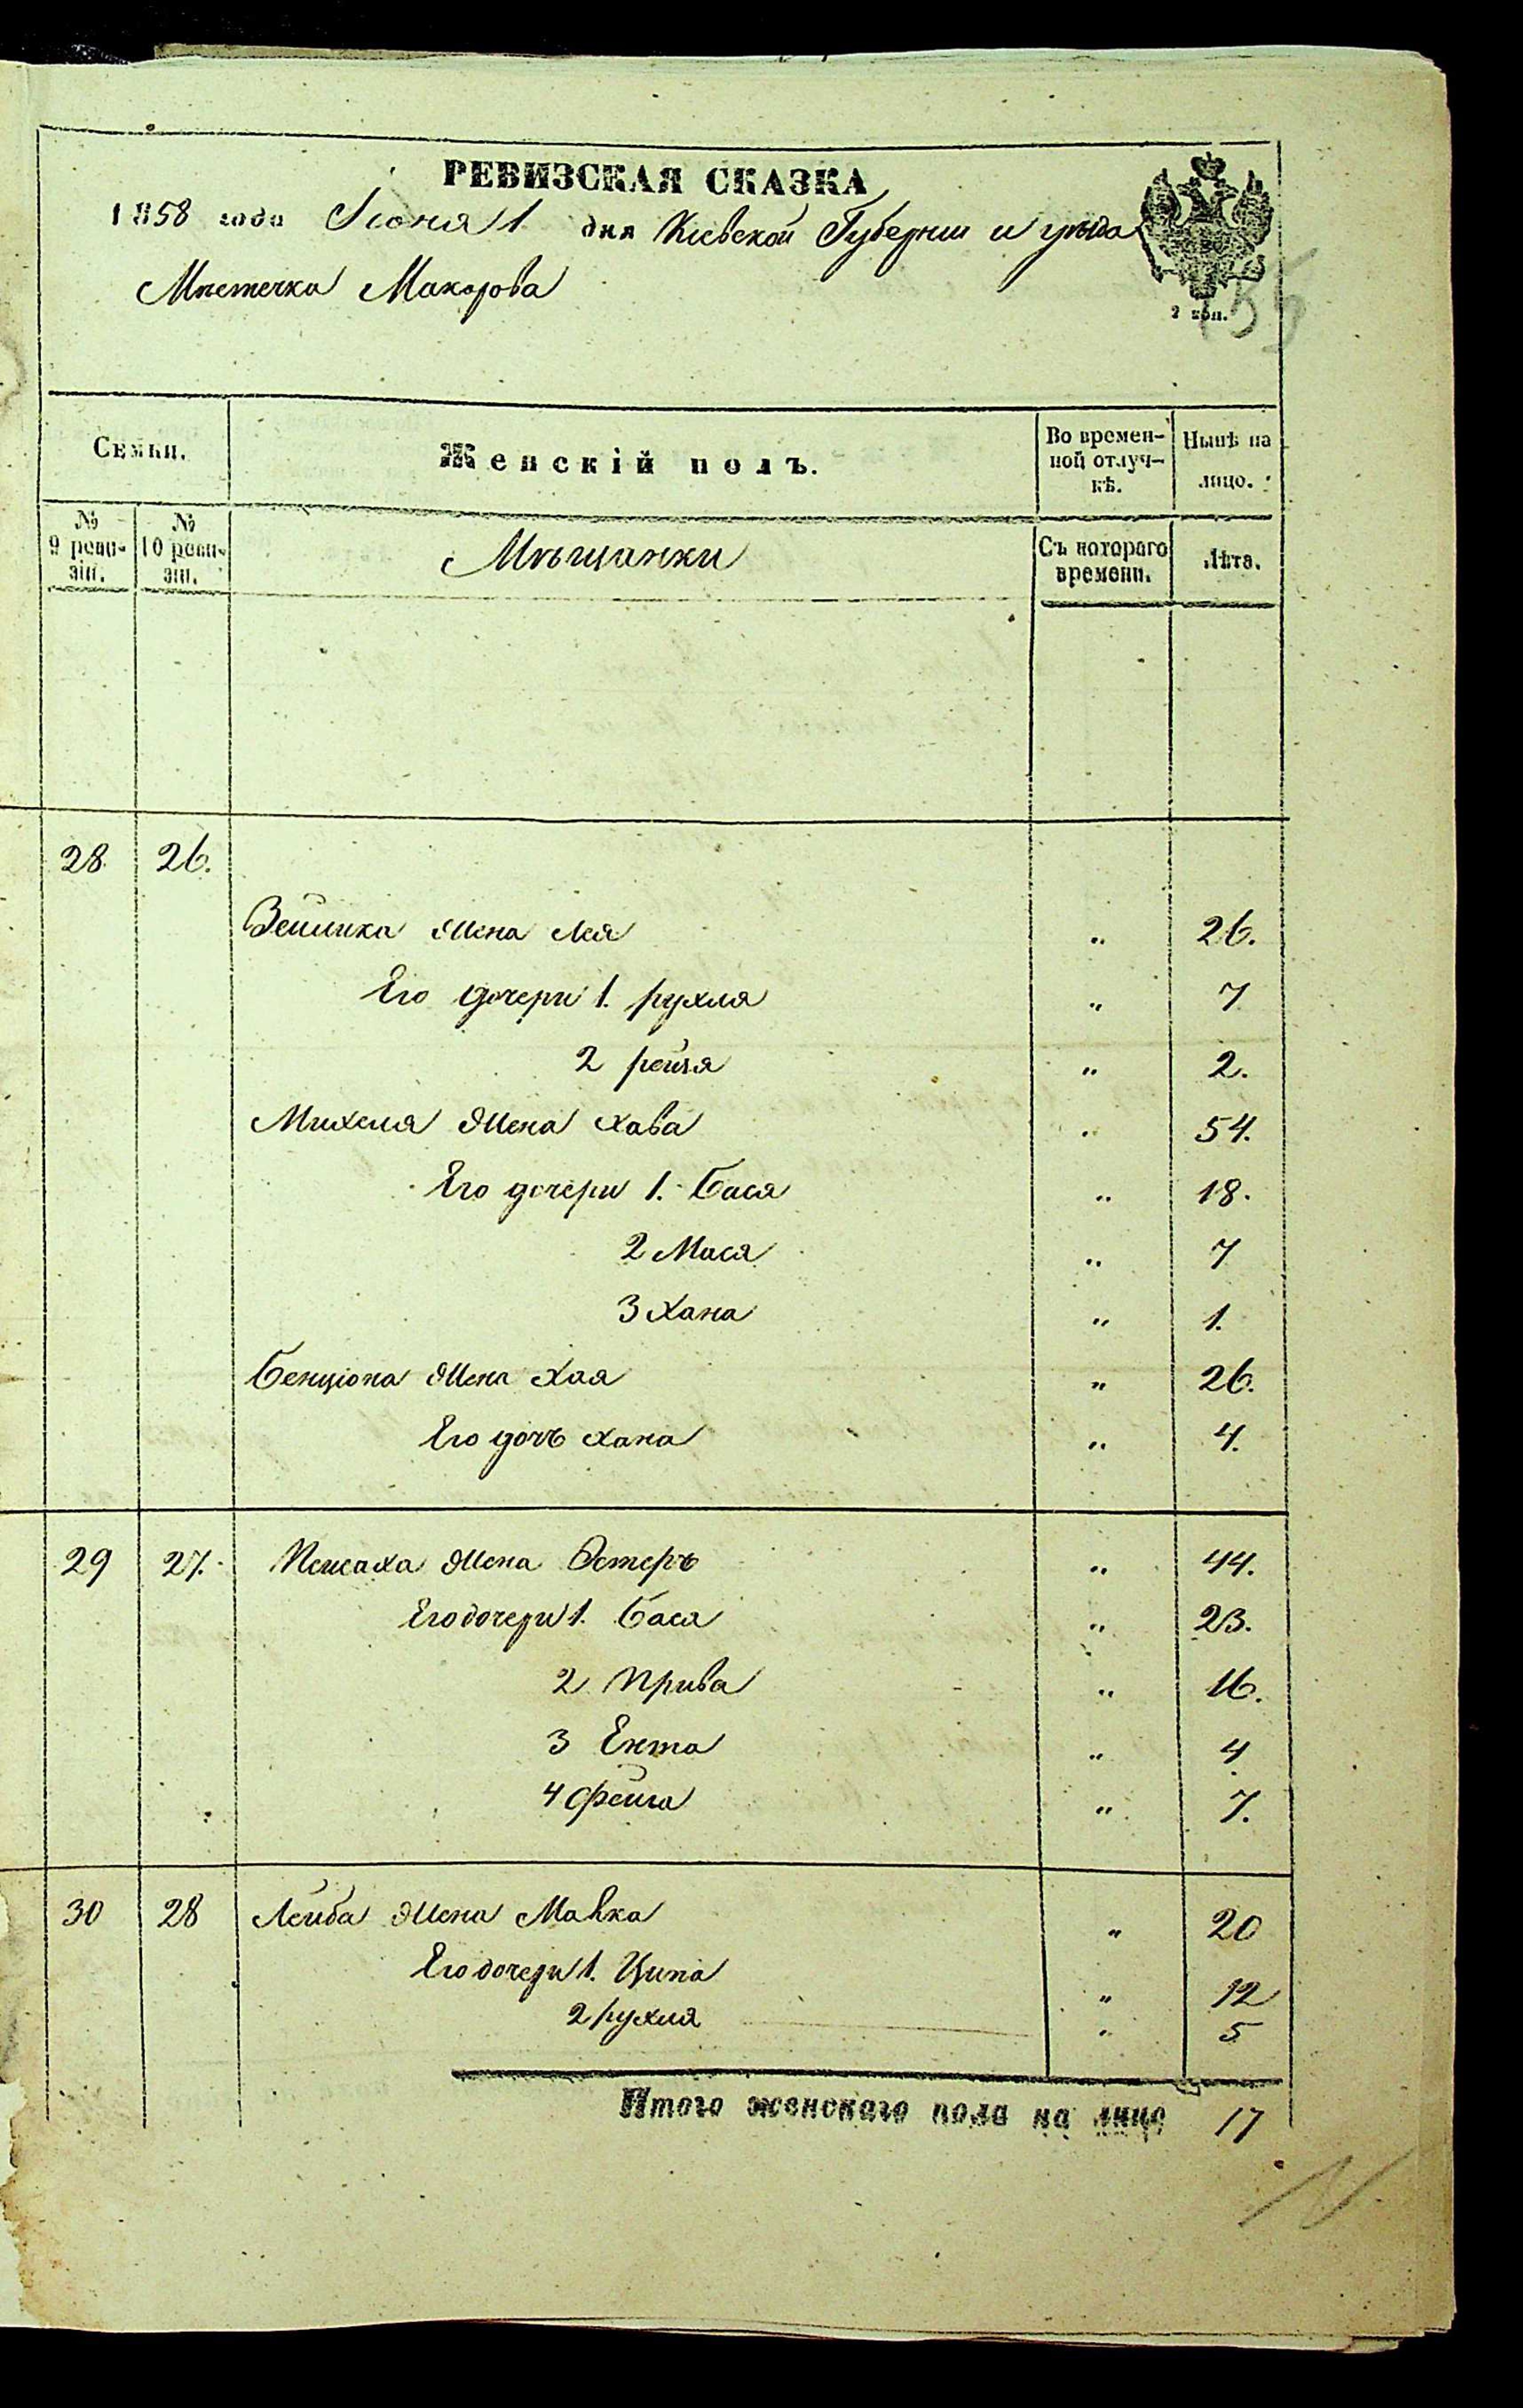 РЕВИЗСКАЯ СКАЗКА
1858 года Іюня 1 дня Кіевской Губерніи и уѣзда
Мѣстечка Макарова
2 коп.
155
Семьи.
Женскій полъ.
Во временной отлучкѣ.
Нынѣ на лицо.
№ 9 ревизіи.
№ 10 ревизіи.
Мѣщанки
Съ котораго времени.
Лѣта.
28 26.
Зейлика Жена Лея " 26.
Его дочери 1. рухля " 7
2 рейзя " 2.
Михеля Жена Хава " 54.
Его дочери 1. Бася " 18.
2 Мася " 7
3 Хана " 1.
Бенціона Жена Хая " 26.
Его дочь Хана " 4.
29 27. Пейсаха Жена Эстеръ " 44.
Его дочери 1. Бася " 23.
2 Прива " 16.
3 Ента " 4
4 Фейга " 7.
30 28 Лейба Жена Малка " 20
Его дочери 1. Ципа " 12
2 рухля " 5
Итого женскаго пола на лицо 17